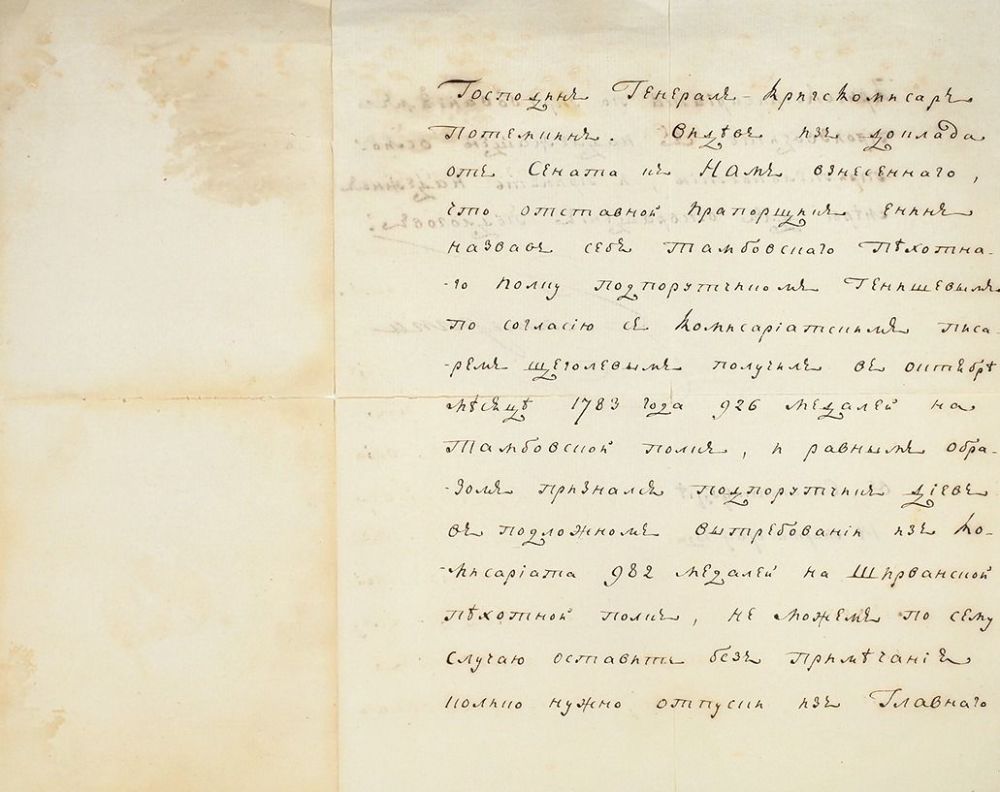 Господинъ Генералъ-Кригскомисаръ
Потемкинъ. Видѣвъ изъ доклада
отъ Сената къ Намъ взнесеннаго,
что отставной Прапорщикъ Енинъ
назвавъ себѣ Тамбовскаго Пѣхотна-
-го полку подпорутчикомъ Тенишевымъ
по согласію съ Комисаріатскимъ писа-
-ремъ щеголевымъ получилъ въ октябрѣ
мѣсяцѣ 1783 года 926 медалей на
Тамбовской полкъ, и равнымъ обра-
-зомъ признался подпорутчикъ Діевъ
въ подложномъ вытребованіи изъ Ко-
-мисаріата 982 медалей на Ширванской
пѣхотной полкъ, не можемъ по сему
случаю оставить безъ примѣчаніѣ
колико нужно отпуски изъ Главнаго